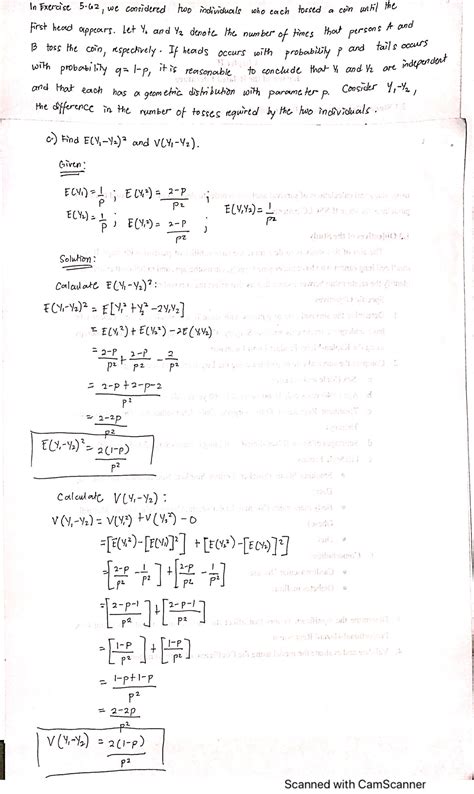 In Exercise 5.62, we considered two individuals who each tossed a coin until the
first head appears. Let Y₁ and Y₂ denote the number of times that persons A and
B toss the coin, respectively. If heads occurs with probability p and tails occurs
with probability q = 1-p, it is reasonable to conclude that Y₁ and Y₂ are independent
and that each has a geometric distribution with parameter p. Consider Y₁-Y₂,
the difference in the number of tosses required by the two individuals.
c.) Find E(Y₁-Y₂)² and V(Y₁-Y₂).
Given:
E(Y₁) = 1/p ; E(Y₁²) = 2-p/p² ;
E(Y₂) = 1/p ; E(Y₂²) = 2-p/p² ; E(Y₁Y₂) = 1/p²
Solution:
Calculate E(Y₁-Y₂)²:
E(Y₁-Y₂)² = E[Y₁² + Y₂² - 2Y₁Y₂]
= E(Y₁²) + E(Y₂²) - 2E(Y₁Y₂)
= 2-p/p² + 2-p/p² - 2/p²
= 2-p+2-p-2/p²
= 2-2p/p²
E(Y₁-Y₂)² = 2(1-p)/p²
Calculate V(Y₁-Y₂):
V(Y₁-Y₂) = V(Y₁²) + V(Y₂²) - 0
= [E(Y₁²) - [E(Y₁)]²] + [E(Y₂²) - [E(Y₂)]²]
= [2-p/p² - 1/p²] + [2-p/p² - 1/p²]
= [2-p-1/p²] + [2-p-1/p²]
= [1-p/p²] + [1-p/p²]
= 1-p+1-p/p²
= 2-2p/p²
V(Y₁-Y₂) = 2(1-p)/p²
Scanned with CamScanner